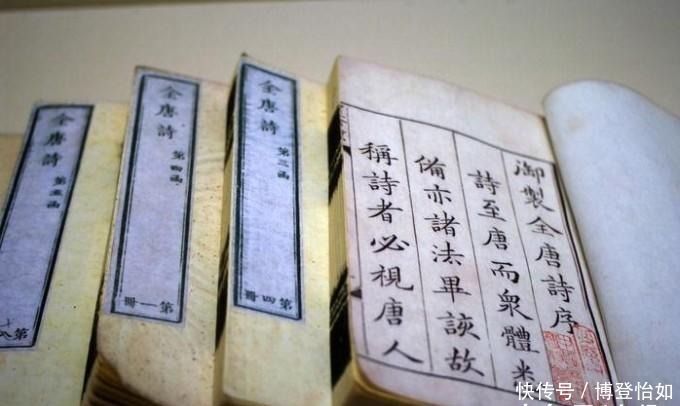 御製全唐詩序
詩至唐而眾體悉
備亦諸法畢該故
稱詩者必視唐人
全唐詩
第三函
第四冊
全唐詩
第四函
第一冊
全唐詩
第五函
第八
快传号 / 博登怡如